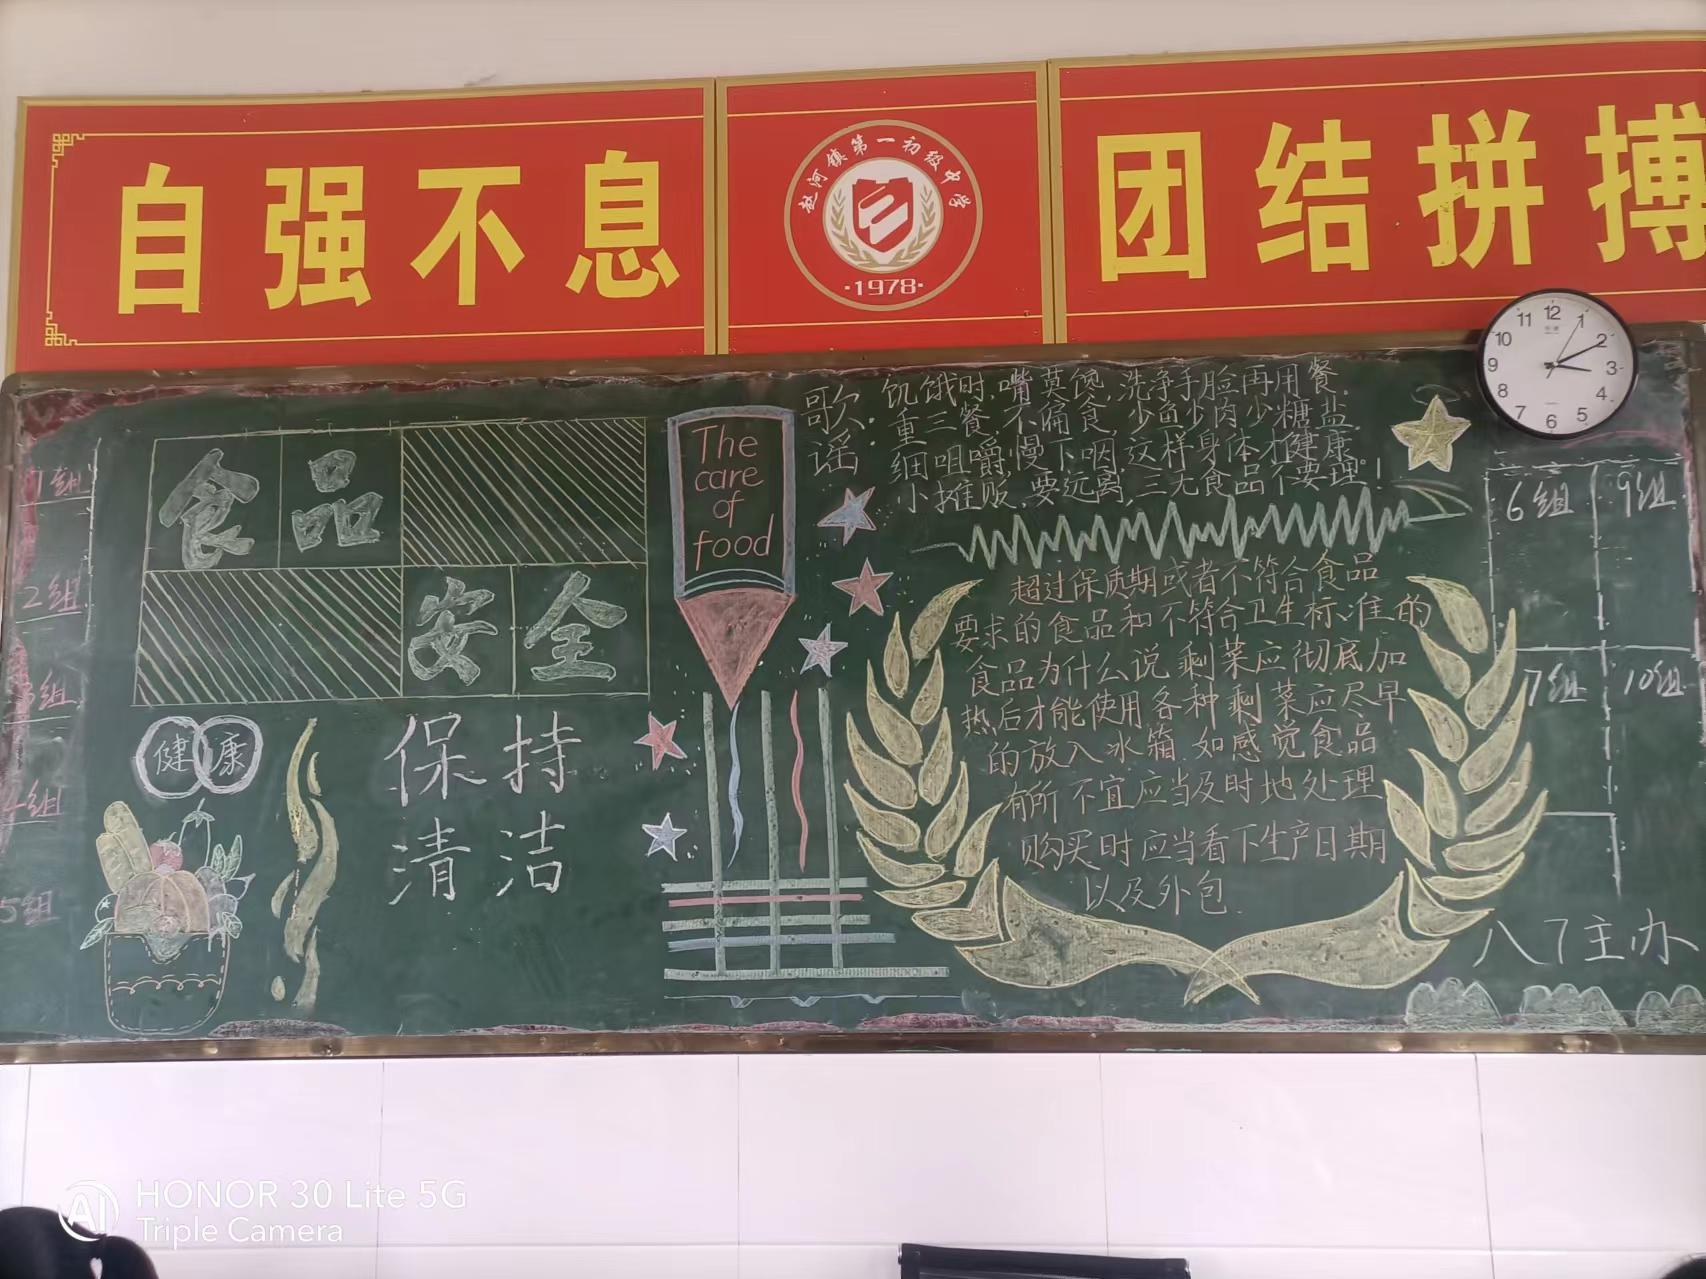 自强不息
赵河镇第一初级中学
·1978·
团结拼搏
12
1
2
3
4
5
6
7
8
9
10
11
1组
2组
3组
4组
5组
食品
安全
健康
保持
清洁
The
care
of
food
歌谣:
饥饿时,嘴莫馋,洗净手脸再用餐.
重三餐,不偏食,少鱼少肉少糖盐.
细咀嚼,慢下咽,这样身体才健康
小摊贩,要远离,三无食品不要理!
超过保质期或者不符合食品
要求的食品和不符合卫生标准的
食品为什么说剩菜应彻底加
热后才能使用各种剩菜应尽早
的放入冰箱.如感觉食品
有所不宜应当及时地处理
购买时应当看下生产日期
以及外包.
6组
9组
7组
10组
八7主办
AI
HONOR 30 Lite 5G
Triple Camera